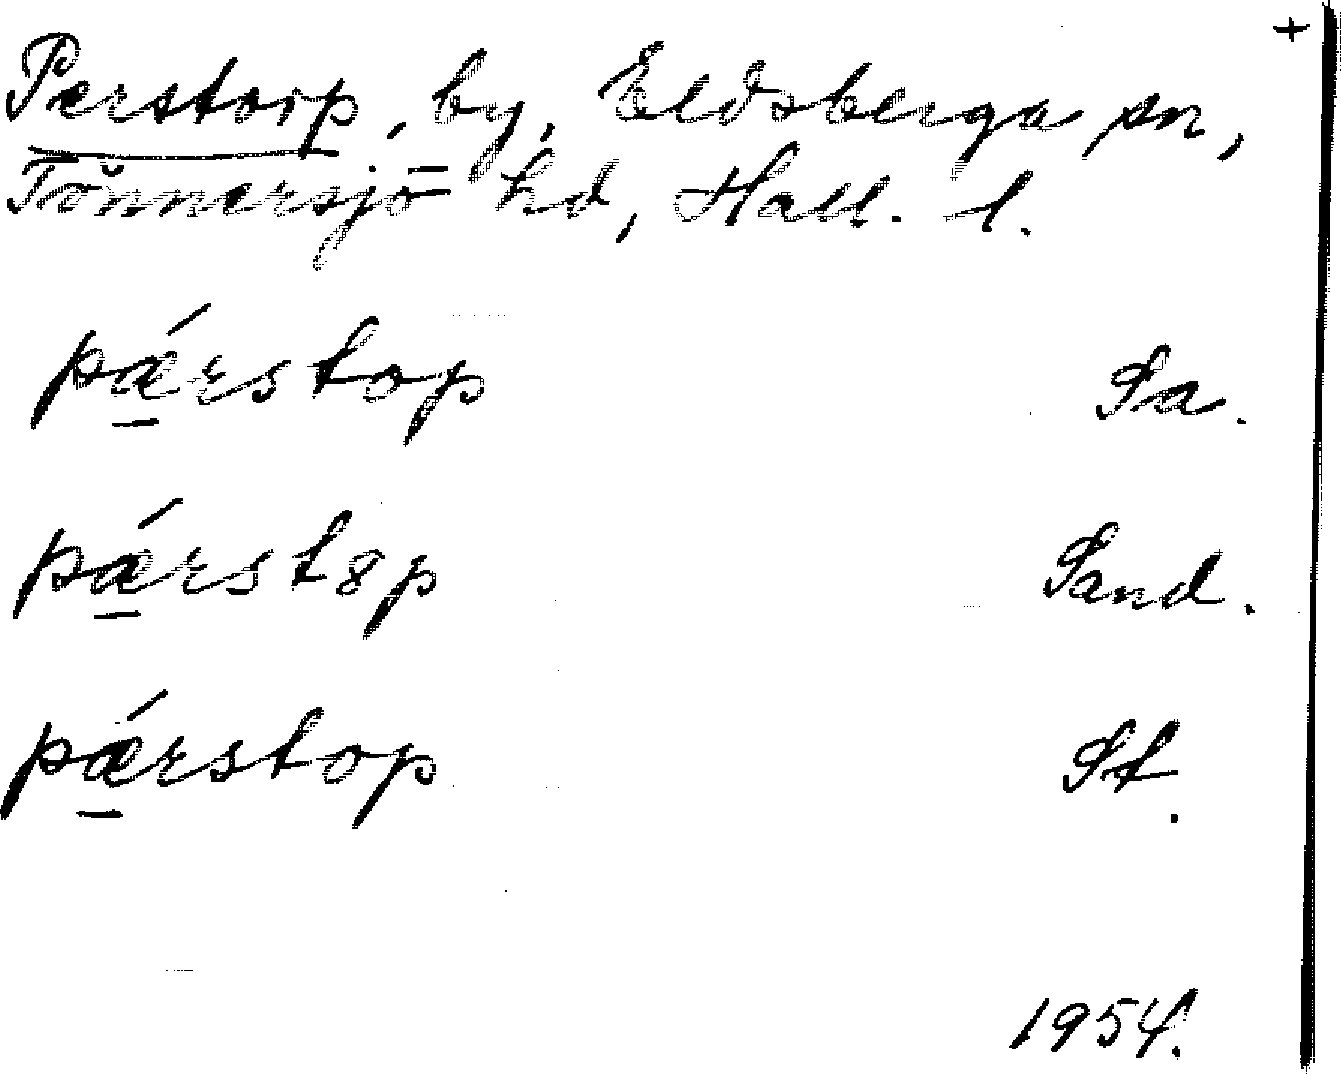 +
Perstorp, by, Eldsberga sn,
Tönnersjö hd, Hall. l.
pǽ̲rstop Sa.
pǽ̲rst8p Sand.
pǽ̲rstop St.
1954.